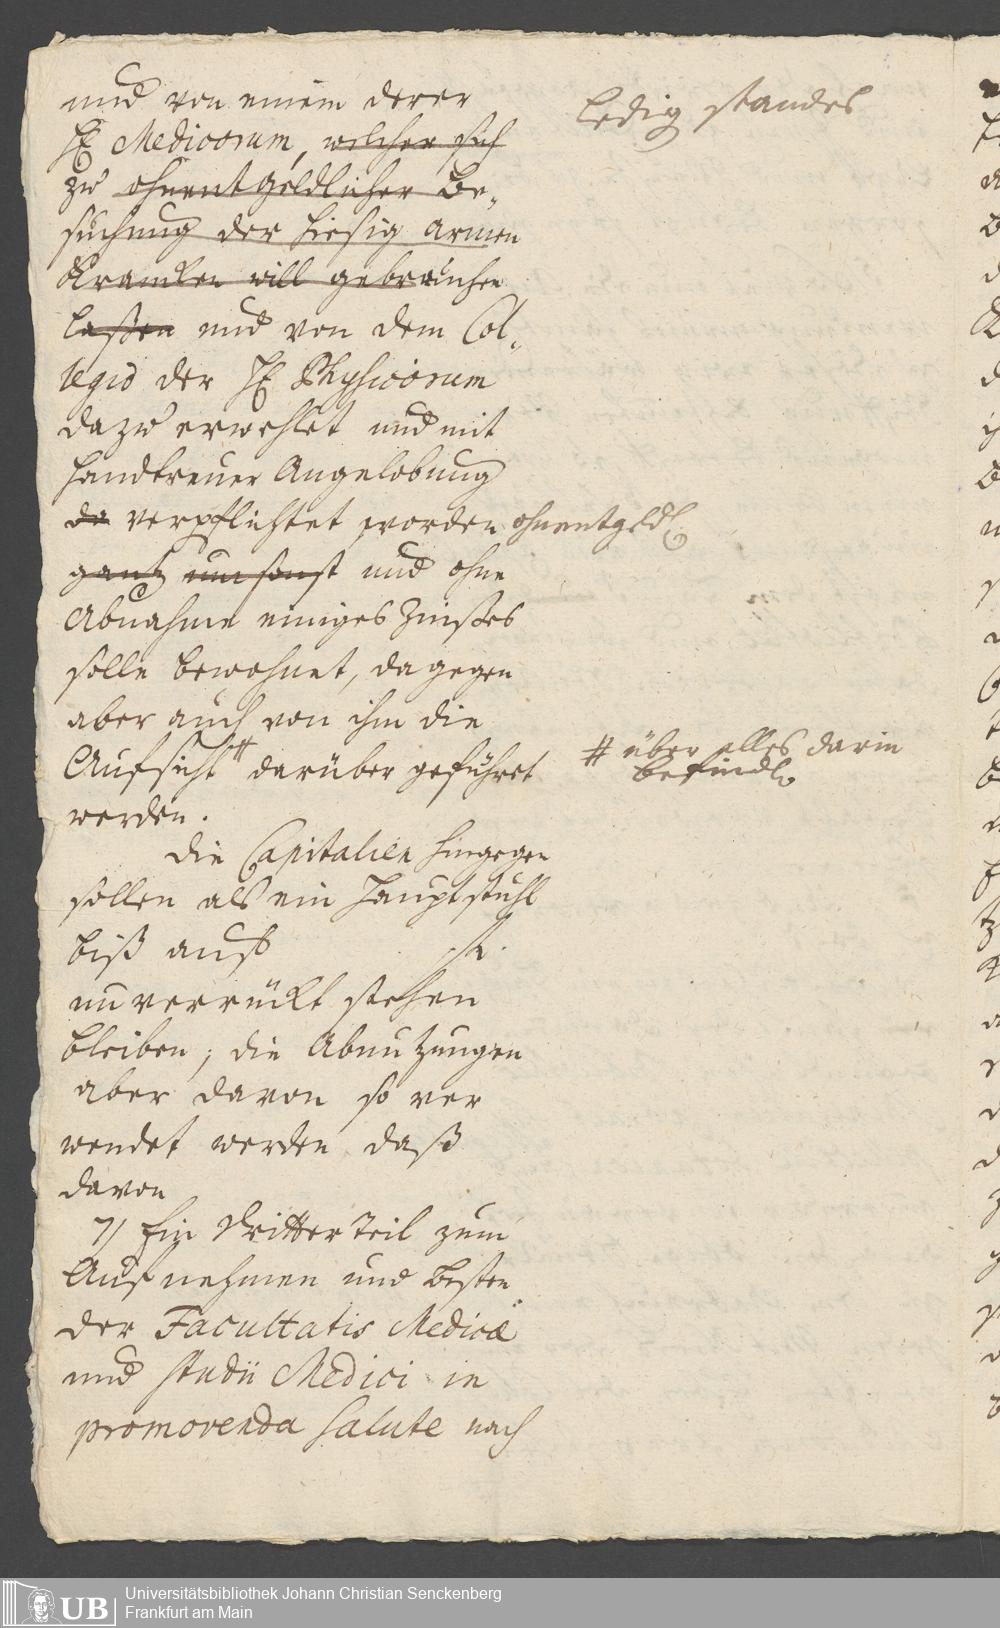 und von einem derer
H. Medicorum, welcher sich
zu ohnentgeldlicher Be-
suchung der hiesig armen
Krancken will gebrauchen
laßen und von dem Col-
legio der H. Physicorum
dazu erwehlet und mit
handtreuer Angelobung
da verpflichtet worden ohnentgeldl.
gantz umsonst und ohne
Abnahme einiges Zinßes
solle bewohnet, dagegen
aber auch von ihm die
Aufsicht # darüber geführet
werden.
die Capitalien hingegen
sollen als ein Hauptstuhl
biß auf
unverrückt stehen
bleiben; die Abnutzungen
aber davon so ver
wendet werden daß
davon
Ein Dritter Teil zum
Aufnehmen und besten
der Facultatis Medicæ
und studii Medici in
promovenda salute nach
ledig standes
# über alles darin
befindl.
UB Universitätsbibliothek Johann Christian Senckenberg
Frankfurt am Main